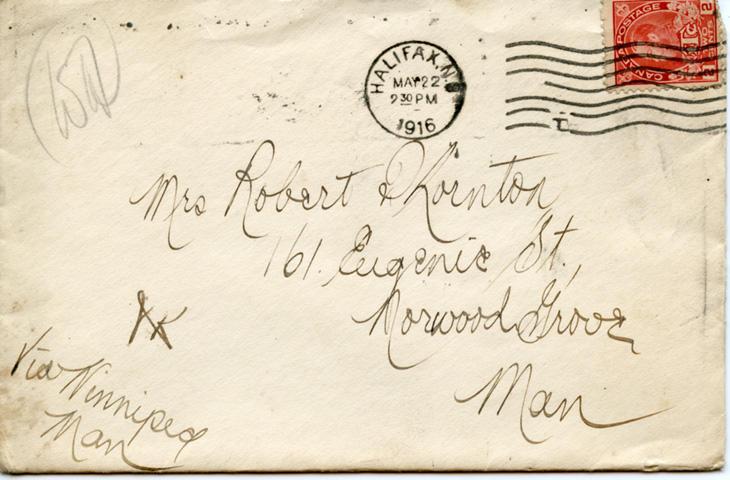 HALIFAX, N.S.
MAY 22
2 30 PM
1916
CANADA POSTAGE
Mrs Robert Thornton
161. Eugenie St.,
Norwood Grove
Man
Via Winnipeg
Man